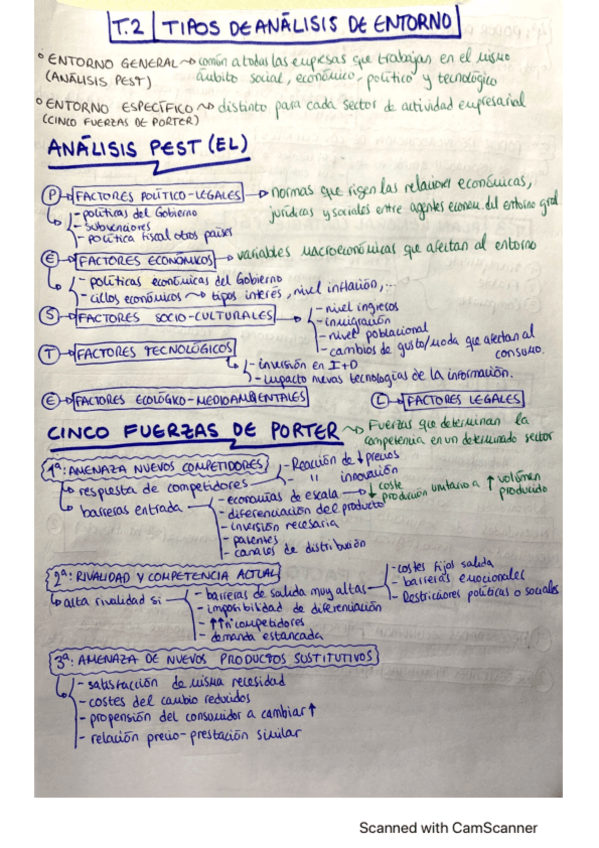 T.2 TIPOS DE ANÁLISIS DE ENTORNO
° ENTORNO GENERAL → común a todas las empresas que trabajan en el mismo
(ANÁLISIS PEST) ámbito social, económico, político y tecnológico
° ENTORNO ESPECÍFICO → distinto para cada sector de actividad empresarial
(CINCO FUERZAS DE PORTER)
ANÁLISIS PEST (EL)
P → FACTORES POLÍTICO-LEGALES → normas que rigen las relaciones económicas,
- políticas del Gobierno jurídicas y sociales entre agentes econom. del entorno gral
- subvenciones
- política fiscal otros países
E → FACTORES ECONÓMICOS → variables macroeconómicas que afectan al entorno
- políticas económicas del Gobierno
- ciclos económicos → tipos interés, nivel inflación,...
S → FACTORES SOCIO-CULTURALES → - nivel ingresos
- inmigración
- nivel poblacional
- cambios de gusto/moda que afectan al
consumo.
T → FACTORES TECNOLÓGICOS
- inversión en I+D
- impacto nuevas tecnologías de la información.
E → FACTORES ECOLÓGICO-MEDIOAMBIENTALES L → FACTORES LEGALES
CINCO FUERZAS DE PORTER → Fuerzas que determinan la
competencia en un determinado sector
1ª: AMENAZA NUEVOS COMPETIDORES
→ respuesta de competidores - Reacción de ↓ precios
- " innovación
→ barreras entrada - economías de escala → ↓ coste producción unitario a ↑ volúmen producido
- diferenciación del producto
- inversión necesaria
- patentes
- canales de distribución
2ª: RIVALIDAD Y COMPETENCIA ACTUAL
→ alta rivalidad si - barreras de salida muy altas - costes fijos salida
- barreras emocionales
- Restricciones políticas o sociales
- imposibilidad de diferenciación
- ↑↑ nº competidores
- demanda estancada
3ª: AMENAZA DE NUEVOS PRODUCTOS SUSTITUTIVOS
- satisfacción de misma necesidad
- costes del cambio reducidos
- propensión del consumidor a cambiar ↑
- relación precio-prestación similar
Scanned with CamScanner